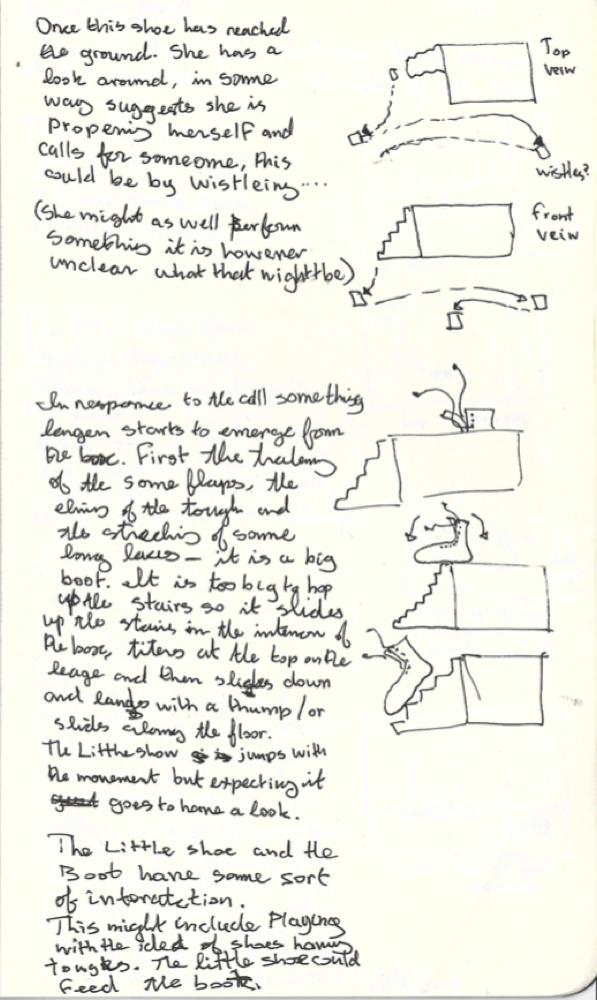 Once this shoe has reached
the ground. She has a
look around, in some
way suggests she is
Propening herself and
calls for someome, this
could be by wistleing....
(She might as well perform
something it is however
unclear what that mightbe)
Top
veiw
wistles?
front
veiw
In responce to the call something
larger starts to emerge from
the box. First the
of the some flaps, the
of the tough and
the streching of some
long laces – it is a big
boot. It is too big to hop
up the stairs so it slides
up the stairs in the interior of
the box, titers at the top on the
leage and then slides down
and lands with a thump / or
slides along the floor.
The Little show is jumps with
the movement but expecting it
goes to have a look.
The Little shoe and the
Boot have some sort
of interatction.
This might include Playing
with the idea of shoes having
tongues. The little shoe could
feed the boot.